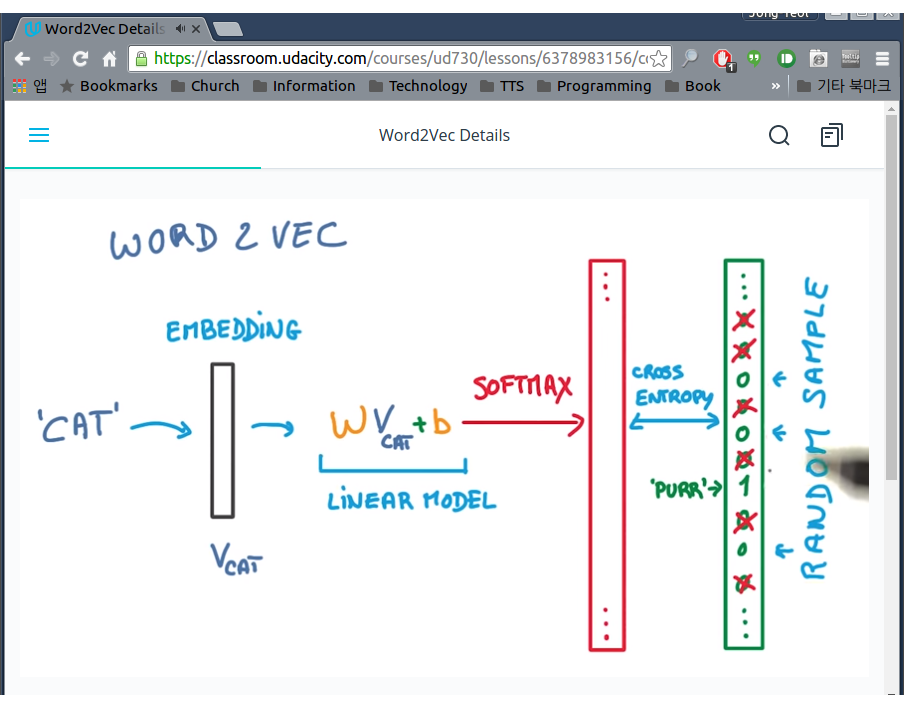 Word2Vec Details
https://classroom.udacity.com/courses/ud730/lessons/6378983156/c
앱 Bookmarks Church Information Technology TTS Programming Book » 기타 북마크
Word2Vec Details
WORD 2 VEC
EMBEDDING
'CAT'
V CAT
W V CAT + b
LINEAR MODEL
SOFTMAX
CROSS
ENTROPY
0
0
'PURR' → 1
0
RANDOM SAMPLE